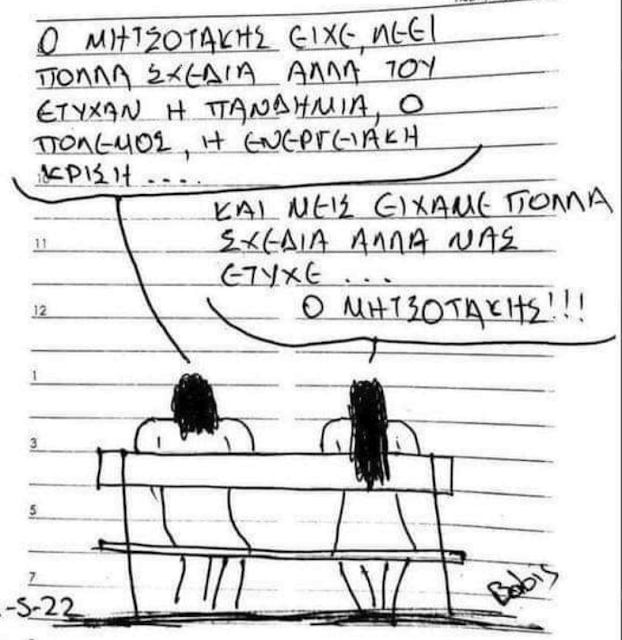 Ο ΜΗΤΣΟΤΑΚΗΣ ΕΙΧΕ, ΛΕΕΙ
ΠΟΛΛΑ ΣΧΕΔΙΑ ΑΛΛΑ ΤΟΥ
ΕΤΥΧΑΝ Η ΠΑΝΔΗΜΙΑ, Ο
ΠΟΛΕΜΟΣ, Η ΕΝΕΡΓΕΙΑΚΗ
ΚΡΙΣΗ ....
ΚΑΙ ΜΕΙΣ ΕΙΧΑΜΕ ΠΟΛΛΑ
ΣΧΕΔΙΑ ΑΛΛΑ ΜΑΣ
ΕΤΥΧΕ ...
Ο ΜΗΤΣΟΤΑΚΗΣ!!!
11
12
1
3
5
7
-5-22
Bobis